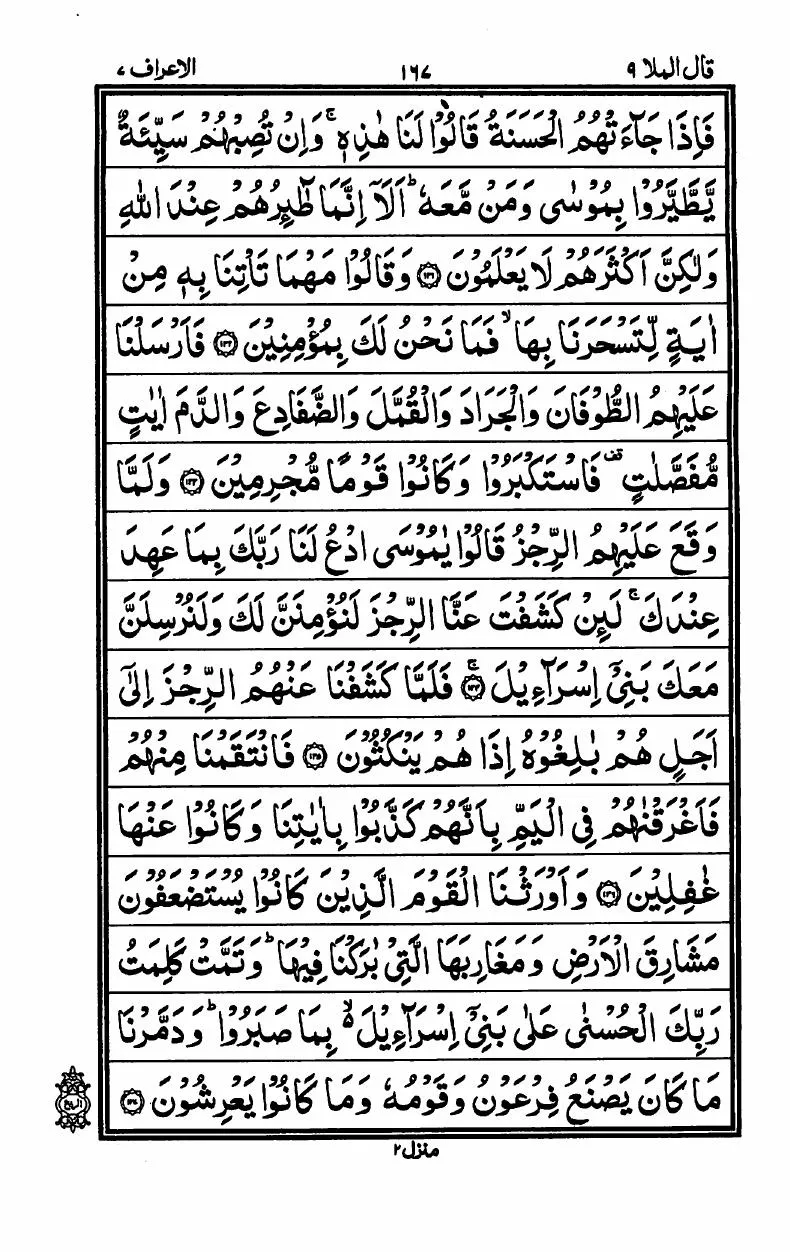 قال الملا ٩
١٦٧
الاعراف ٧
فَاِذَا جَآءَتْهُمُ الْحَسَنَةُ قَالُوْا لَنَا هٰذِهٖ ۚ وَاِنْ تُصِبْهُمْ سَيِّئَةٌ
يَّطَّيَّرُوْا بِمُوْسٰى وَمَنْ مَّعَهٗ ؕ اَلَاۤ اِنَّمَا طٰٓئِرُهُمْ عِنْدَ اللّٰهِ
وَلٰكِنَّ اَكْثَرَهُمْ لَا يَعْلَمُوْنَ ﴿۱۳۱﴾ وَقَالُوْا مَهْمَا تَاْتِنَا بِهٖ مِنْ
اٰيَةٍ لِّتَسْحَرَنَا بِهَا ۙ فَمَا نَحْنُ لَكَ بِمُؤْمِنِيْنَ ﴿۱۳۲﴾ فَاَرْسَلْنَا
عَلَيْهِمُ الطُّوْفَانَ وَالْجَرَادَ وَالْقُمَّلَ وَالضَّفَادِعَ وَالدَّمَ اٰيٰتٍ
مُّفَصَّلٰتٍ ۟ فَاسْتَكْبَرُوْا وَكَانُوْا قَوْمًا مُّجْرِمِيْنَ ﴿۱۳۳﴾ وَلَمَّا
وَقَعَ عَلَيْهِمُ الرِّجْزُ قَالُوْا يٰمُوْسَى ادْعُ لَنَا رَبَّكَ بِمَا عَهِدَ
عِنْدَكَ ۚ لَئِنْ كَشَفْتَ عَنَّا الرِّجْزَ لَنُؤْمِنَنَّ لَكَ وَلَنُرْسِلَنَّ
مَعَكَ بَنِيْۤ اِسْرَآءِيْلَ ﴿۱۳۴﴾ۚ فَلَمَّا كَشَفْنَا عَنْهُمُ الرِّجْزَ اِلٰٓى
اَجَلٍ هُمْ بٰلِغُوْهُ اِذَا هُمْ يَنْكُثُوْنَ ﴿۱۳۵﴾ فَانْتَقَمْنَا مِنْهُمْ
فَاَغْرَقْنٰهُمْ فِى الْيَمِّ بِاَنَّهُمْ كَذَّبُوْا بِاٰيٰتِنَا وَكَانُوْا عَنْهَا
غٰفِلِيْنَ ﴿۱۳۶﴾ وَاَوْرَثْنَا الْقَوْمَ الَّذِيْنَ كَانُوْا يُسْتَضْعَفُوْنَ
مَشَارِقَ الْاَرْضِ وَمَغَارِبَهَا الَّتِيْ بٰرَكْنَا فِيْهَا ؕ وَتَمَّتْ كَلِمَتُ
رَبِّكَ الْحُسْنٰى عَلٰى بَنِيْۤ اِسْرَآءِيْلَ ۙ۬ بِمَا صَبَرُوْا ؕ وَدَمَّرْنَا
مَا كَانَ يَصْنَعُ فِرْعَوْنُ وَقَوْمُهٗ وَمَا كَانُوْا يَعْرِشُوْنَ ﴿۱۳۷﴾
الربع
منزل ٢